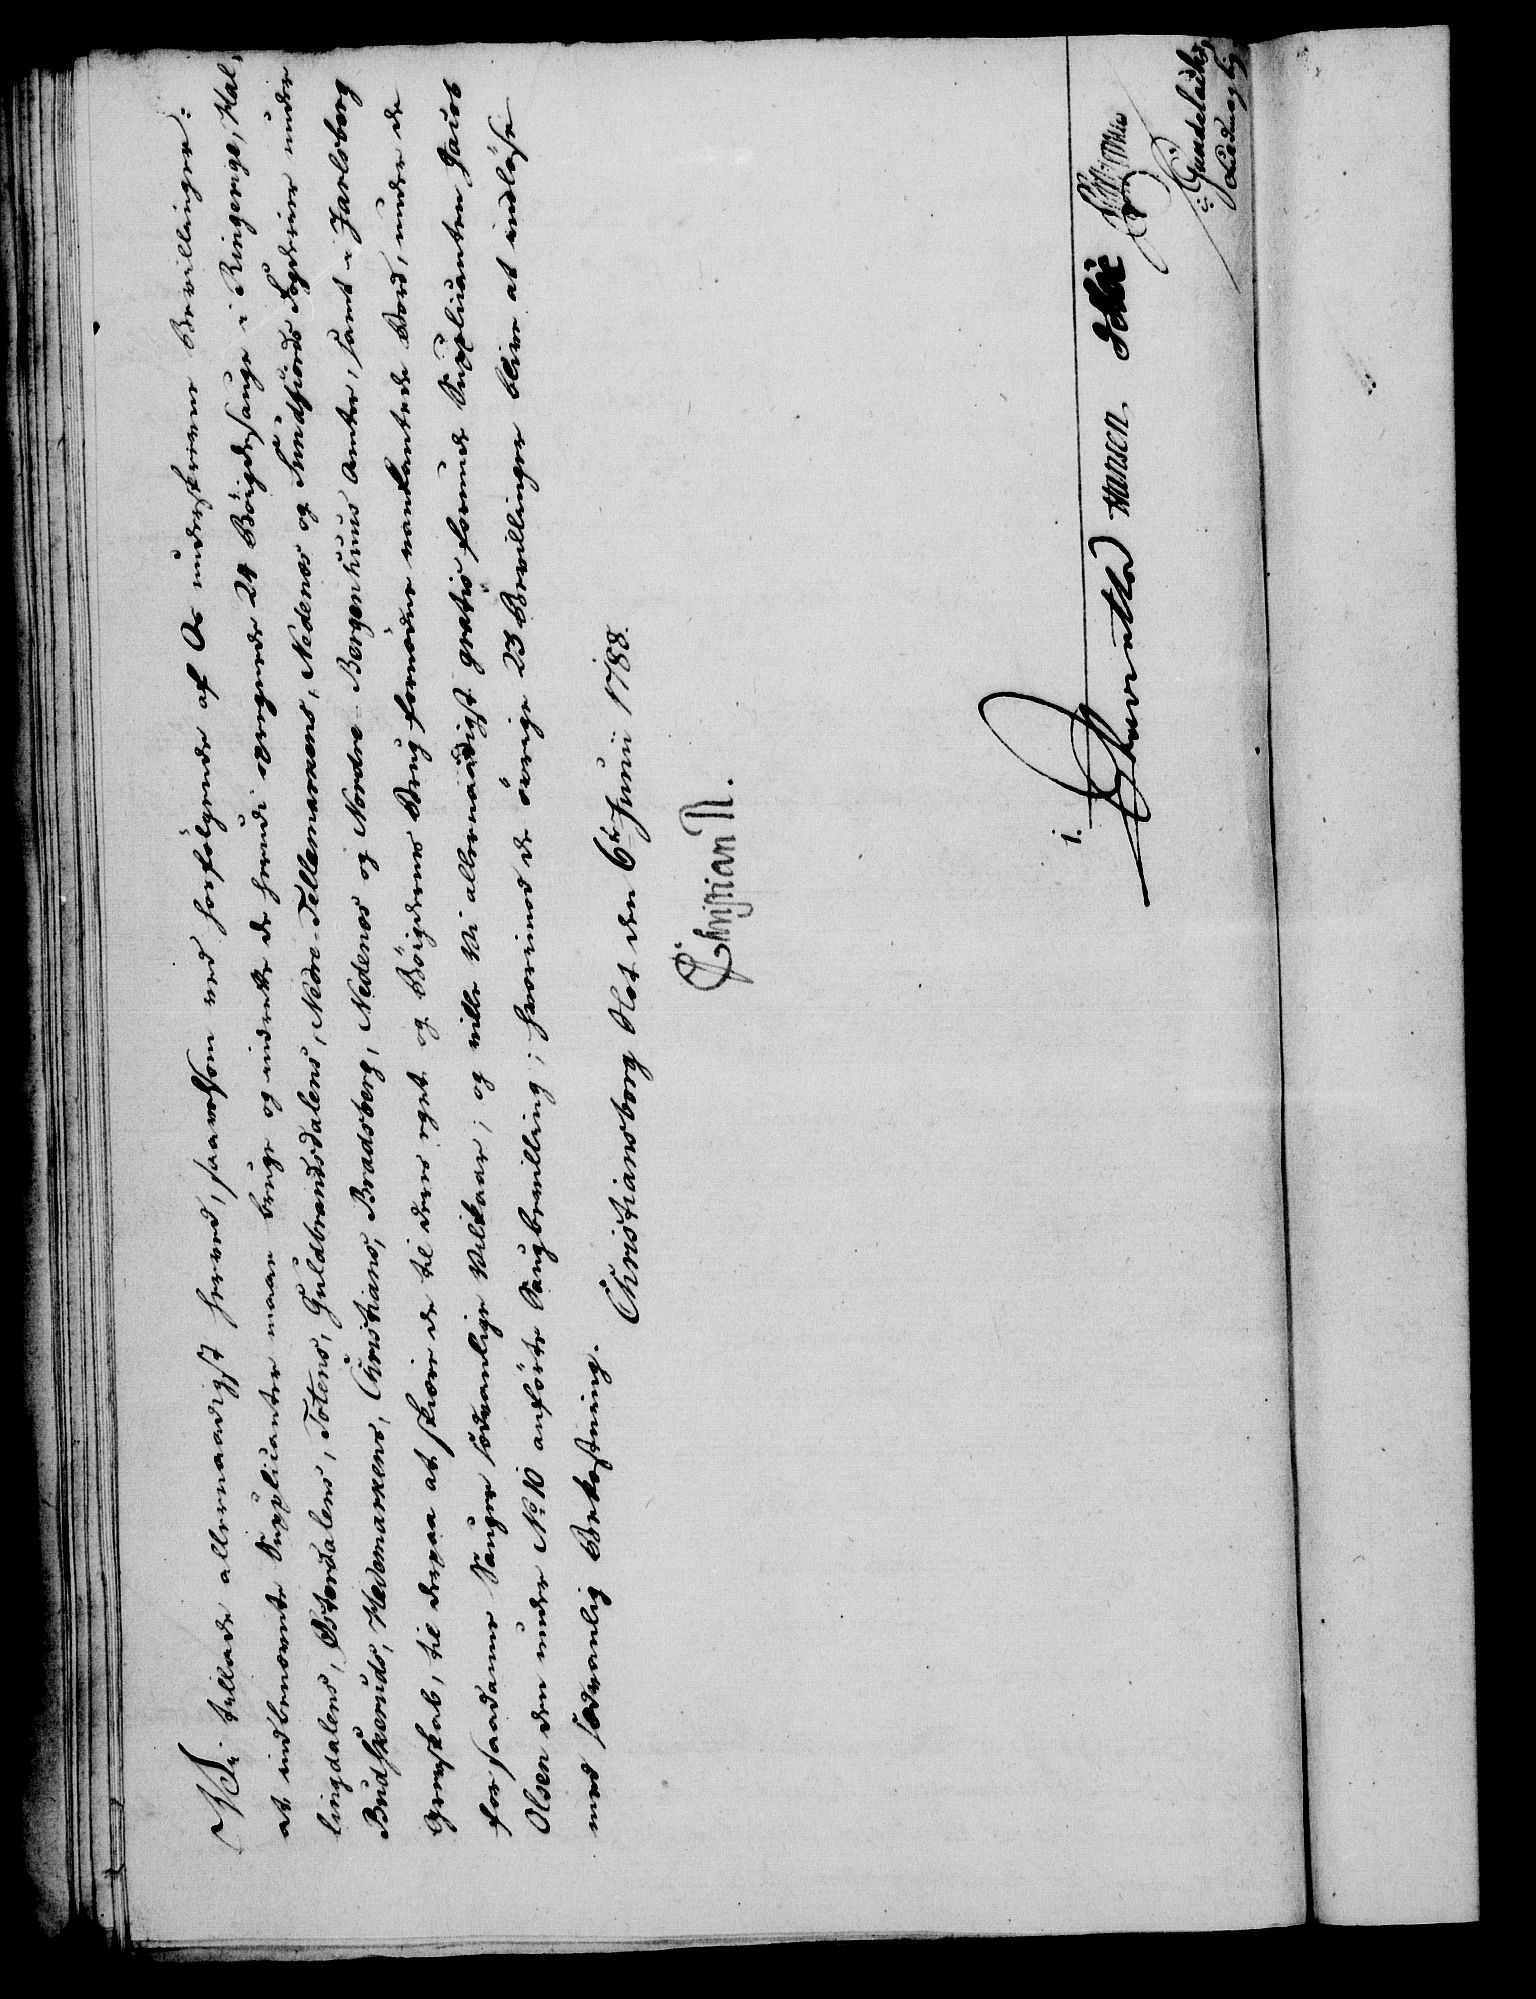 Vi tillade allernaadigst herved, saavelsom ved hosfølgende af Os underskrevne Bevillinger:
at indbenævnte Supplicanter maae bruge og indrette de herudi opregnede 24 Bøigdesauge i Ringerige, Hal-
lingdalens, Østerdalens, Totens, Guldbrandsdalens, Nedre-Tellemarkens, Nedenes og Sundfiords Fogderier under
Budskeruds, Hedemarkens, Christians, Bradsberg, Nedenes og Nordre-Bergenhuus Amter, samt i Jarlsberg
Grevskab, til derpaa at skiære de til deres eget og Bøigdernes Brug fornødne vankantede Bord, under de
for saadanne Sauger sædvanlige Vilkaar; og ville Vi allernaadigst gratis forunde Supplicanten Jacob
Olsen den under No. 10 anførte Saugbevilling; hvorimod de øvrige 23 Bevillinger blive at indløse
med sædvanlig Bekostning.
Christiansborg Slot den 6te Junii 1788.
Christian R.
1.
Hansen.
Gundelach,